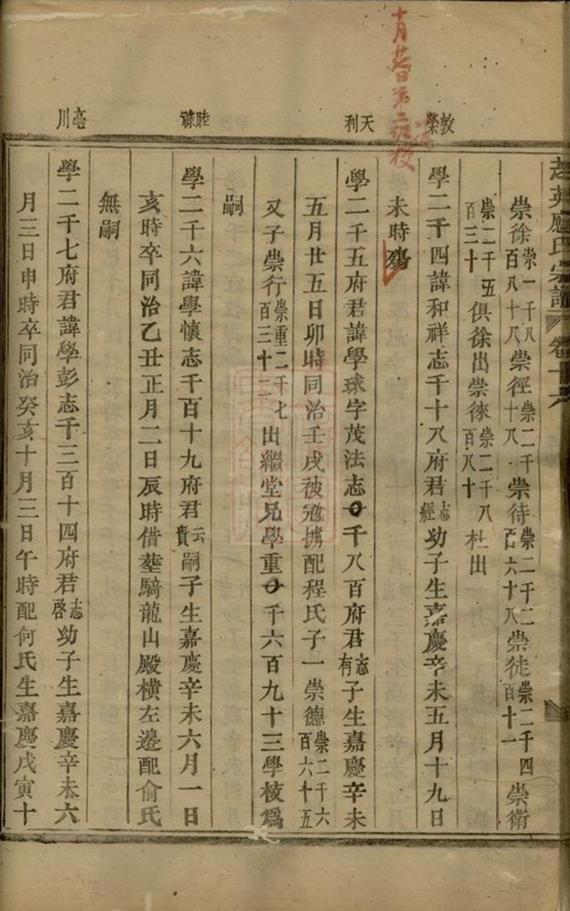 芝英應氏宗譜 卷十六
崇徐崇一千八百八十八崇徑崇二千十八崇待崇二千二百六十八崇徒崇二千四百十一崇衛
崇二千五百三十俱徐出崇徠崇二千八百八十杜出
學二千四諱和祥志千十八府君志經幼子生嘉慶辛未五月十九日
未時殤
學二千五府君諱學球字茂法志千八百府君志有子生嘉慶辛未
五月廿五日卯時同治壬戌被寇擄配程氏子一崇德崇二千六百六十五
又子崇行崇二千七百三十二出繼堂兄學重千六百九十三學梭爲
嗣
學二千六諱學懷志千百十九府君云貴嗣子生嘉慶辛未六月一日
亥時卒同治乙丑正月二日辰時借塟騎龍山殿橫左邊配俞氏
無嗣
學二千七府君諱學彭志千三百十四府君志啓幼子生嘉慶辛未六
月三日申時卒同治癸亥十月三日午時配何氏生嘉慶戊寅十
敦榮
天利
睦祿
亳川